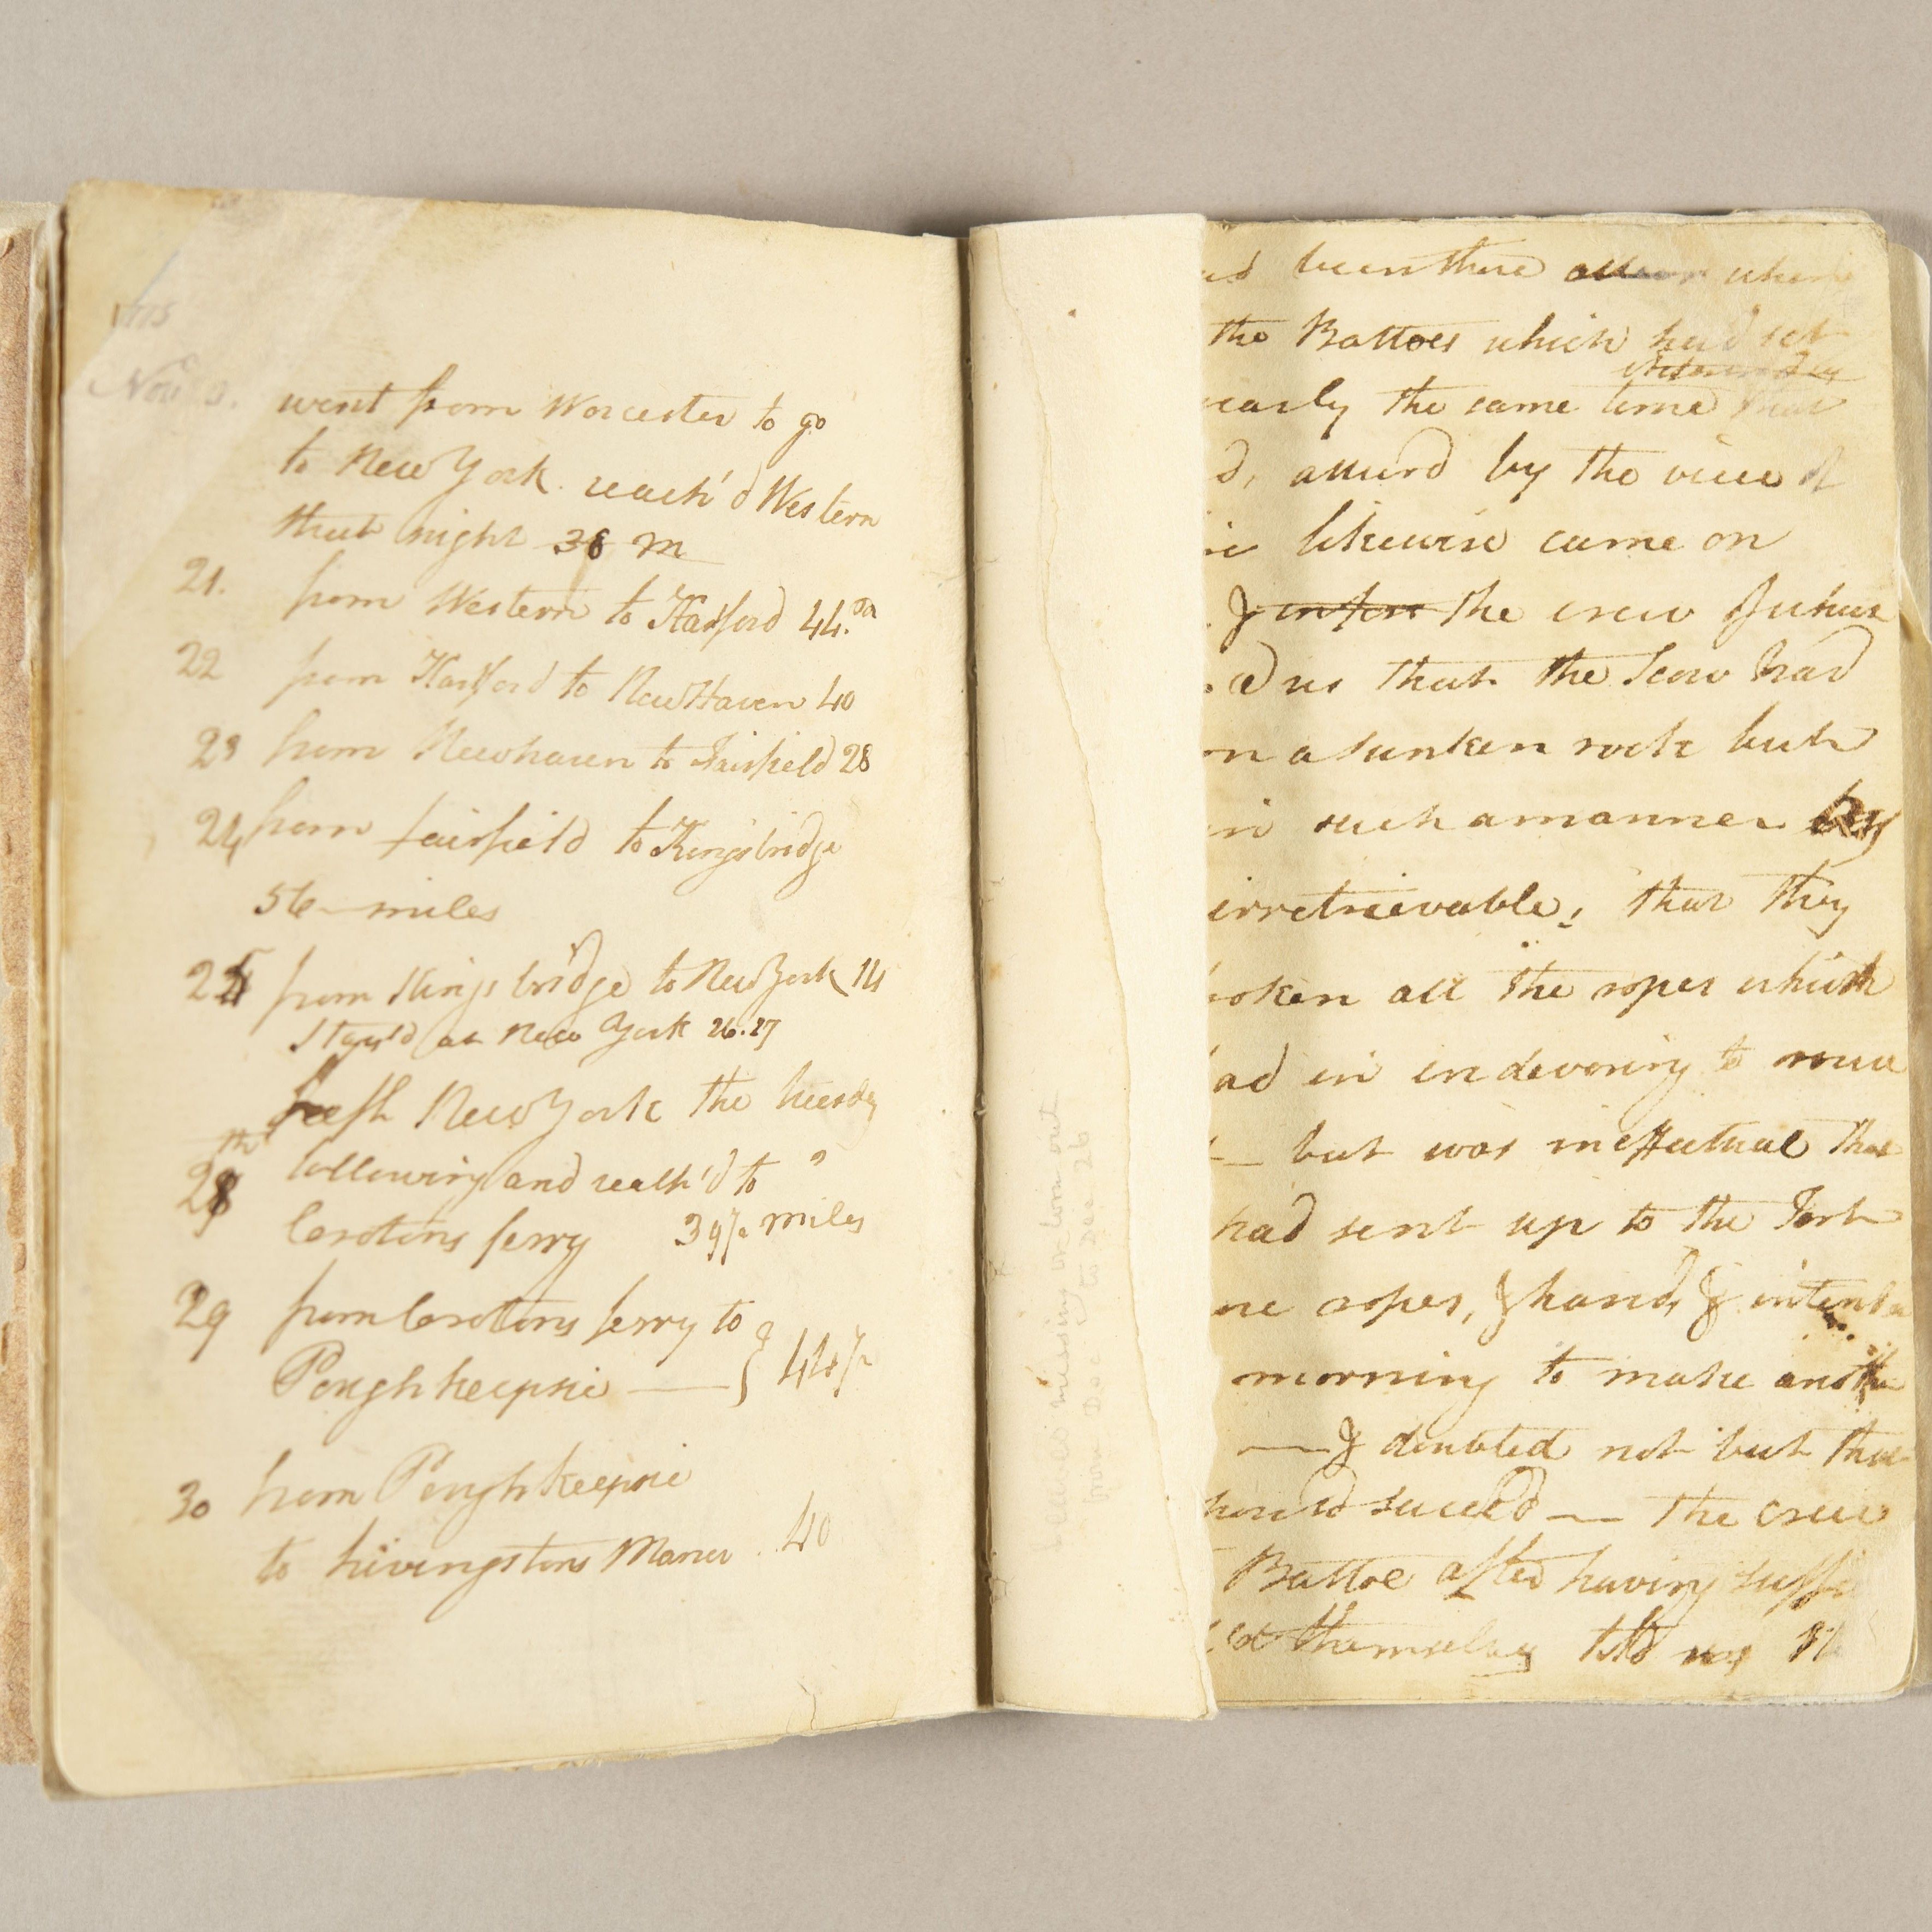 1775
Nov
went from Worcester to go
to New York. reach'd Western
that night 36 m
21. from Western to Hartford 44.
22 from Hartford to NewHaven 40
23 from Newhaven to Fairfield 28
24 from fairfield to Kingsbridge
56 miles
25 from Kings bridge to New York 14
Stay'd at New York 26.27
left New York the tuesday
28th following and reach'd to
Crotons ferry 39 miles
29 from Crotons ferry to
Poughkeepsie — } 44
30 from Poughkeepsie
to Livingstons Manor . 40
leaves missing or torn out
from Dec to Dec 26
been there when
the Battoes which had set
the same time that
by the view of
likewise came on
& the crew of
us that the Scow had
a sunken rock but
such a manner by
irretrievable; that they
all the ropes which
in indevoring to
— but was ineffectual that
had sent up to the Fort
ropes, & hands, &
morning to make another
— & doubted not but that
succeed — the crew
Battoe after having
themselves told us